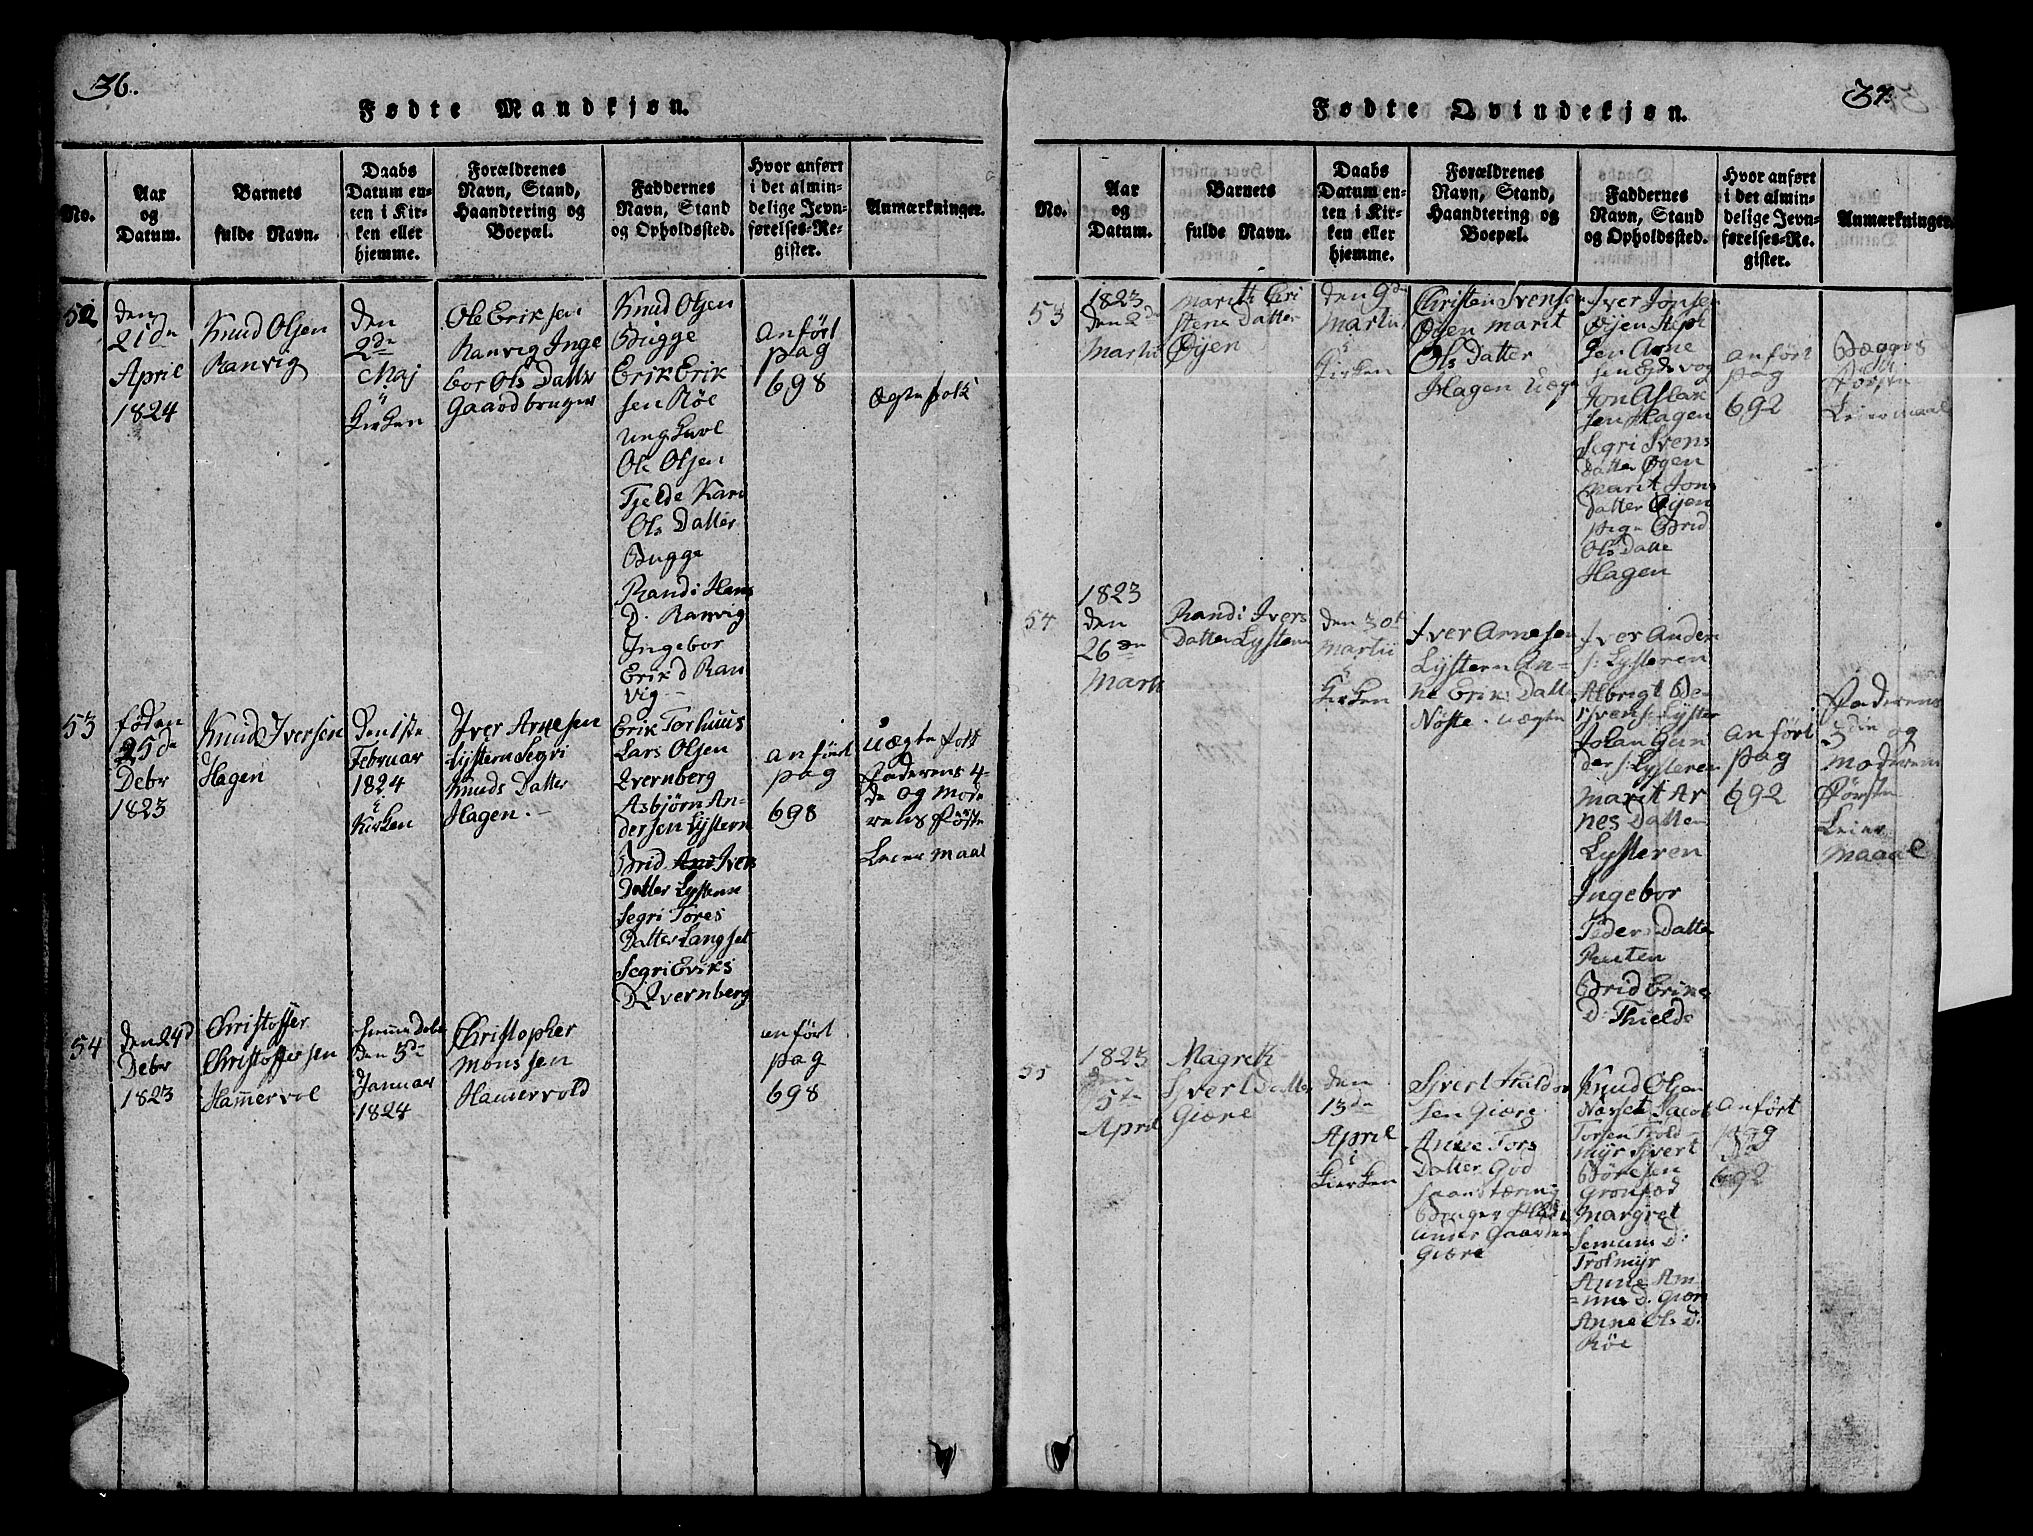 36.
Fødte Mandkjøn.
No.
Aar
og
Datum.
Barnets
fulde Navn.
Daabs
Datum en-
ten i Kir-
ken eller
hjemme.
Forældrenes
Navn, Stand,
Haandtering og
Boepæl.
Faddernes
Navn, Stand
og Opholdssted.
Hvor anført
i det almin-
delige Jevn-
førelses-Re-
gister.
Anmærkninger.
52
den
21de
April
1824
Knud Olsen
Ranvig
den
2de
Maj
i
Kirken
Ole Eriksen
Ranvig Inge
bor Ols Datter
Gaardbruger
Knud Olsen
Bugge
Erik Erik
sen Røe
Ung Karl
Ole Olsen
Tjelde Kari
Ols Datter
Bugge
Randi Hans
D. Ranvig
Ingebor
Erik d Ran
vig
anført
pag
698
Ægte folk
53
føden
25de
Debr
1823
Knud Iversen
Hagen
Den 1ste
Februar
1824
i
Kirken
Iver Arnesen
Lystern Segri
Knuds Datter
Hagen.
Erik Torhuus
Lars Olsen
Qvernberg
Asbjørn An-
dersen Lystern
Brid Ivers
Datter Lystern
Segri Tores
Datter Langset
Segri Eriks
D Qvernberg
anført
pag
698
uægte folk
Faderens 4-
de og mode
rens Første
Leiermaal
54
den 24d
Debr
1823
Christoffer
Christoffersen
Hammervol
hiemme Døbt
den 3de
Januar
1824
Christopher
Monssen
Hamervold
anført
pag
698
37.
Fødte Qvindekjøn.
No.
Aar
og
Datum.
Barnets
fulde Navn.
Daabs
Datum en-
ten i Kir-
ken eller
hjemme.
Forældrenes
Navn, Stand,
Haandtering og
Boepæl.
Faddernes
Navn, Stand
og Opholdssted.
Hvor anført
i det almin-
delige Jevn-
førelses-Re-
gister.
Anmærkninger.
53
1823
den 2de
Martii
Marith Cri
stens Datter
Øyen
den 9de
Martii
i
Kirken
Christen Svensen
Øyen Marit
Ols Datter
Hagen Uægte
Iver Jonsen
Øyen Steph
sen Arne
sen Ejdsvog
Jon Aslak
sen Hagen
Segri Svens
Datter Øyen
Marit Jons
Datter Øyen
Pige Brid
Ols Datte
Hagen
anført
pag
692
Bægges
Første
Leiermaal
54
1823
den
26de
Marti
Randi Ivers
Datter Lystern
den 30t
Martii
i
Kirken
Iver Arnesen
Lystern An-
ne Eriks Datte
Nøste. uægte
Iver Ander
s: Lysteren
Albrigt Be-
Svens: Lyster
Johan Gun
der s: Lysteren
Marit Ar
nes Datter
Lysteren
Ingebor
Peders Datte
Reiten
Brid Eriks
D: Thielde
anført
pag
692
Faderens
3die og
moderens
Første
Leier
maael
55
1823
den
5te
April
Magreth
Sivert Datter
Giøre
den
13de
April
i
Kirken
Sivert Haldor
sen Giøre
Anne Tors
Datter God
haandtæring
Bruger
under Gaarden
Giøre
Knud Olsen
Norset Jacob
Torsen Trold-
myr Sivert
Børesen
Gronset
Margret
Semuns D:
Trolmyr
Anne Am-
D. Giøre
Anne Ols D:
Røe
anført
pag
692